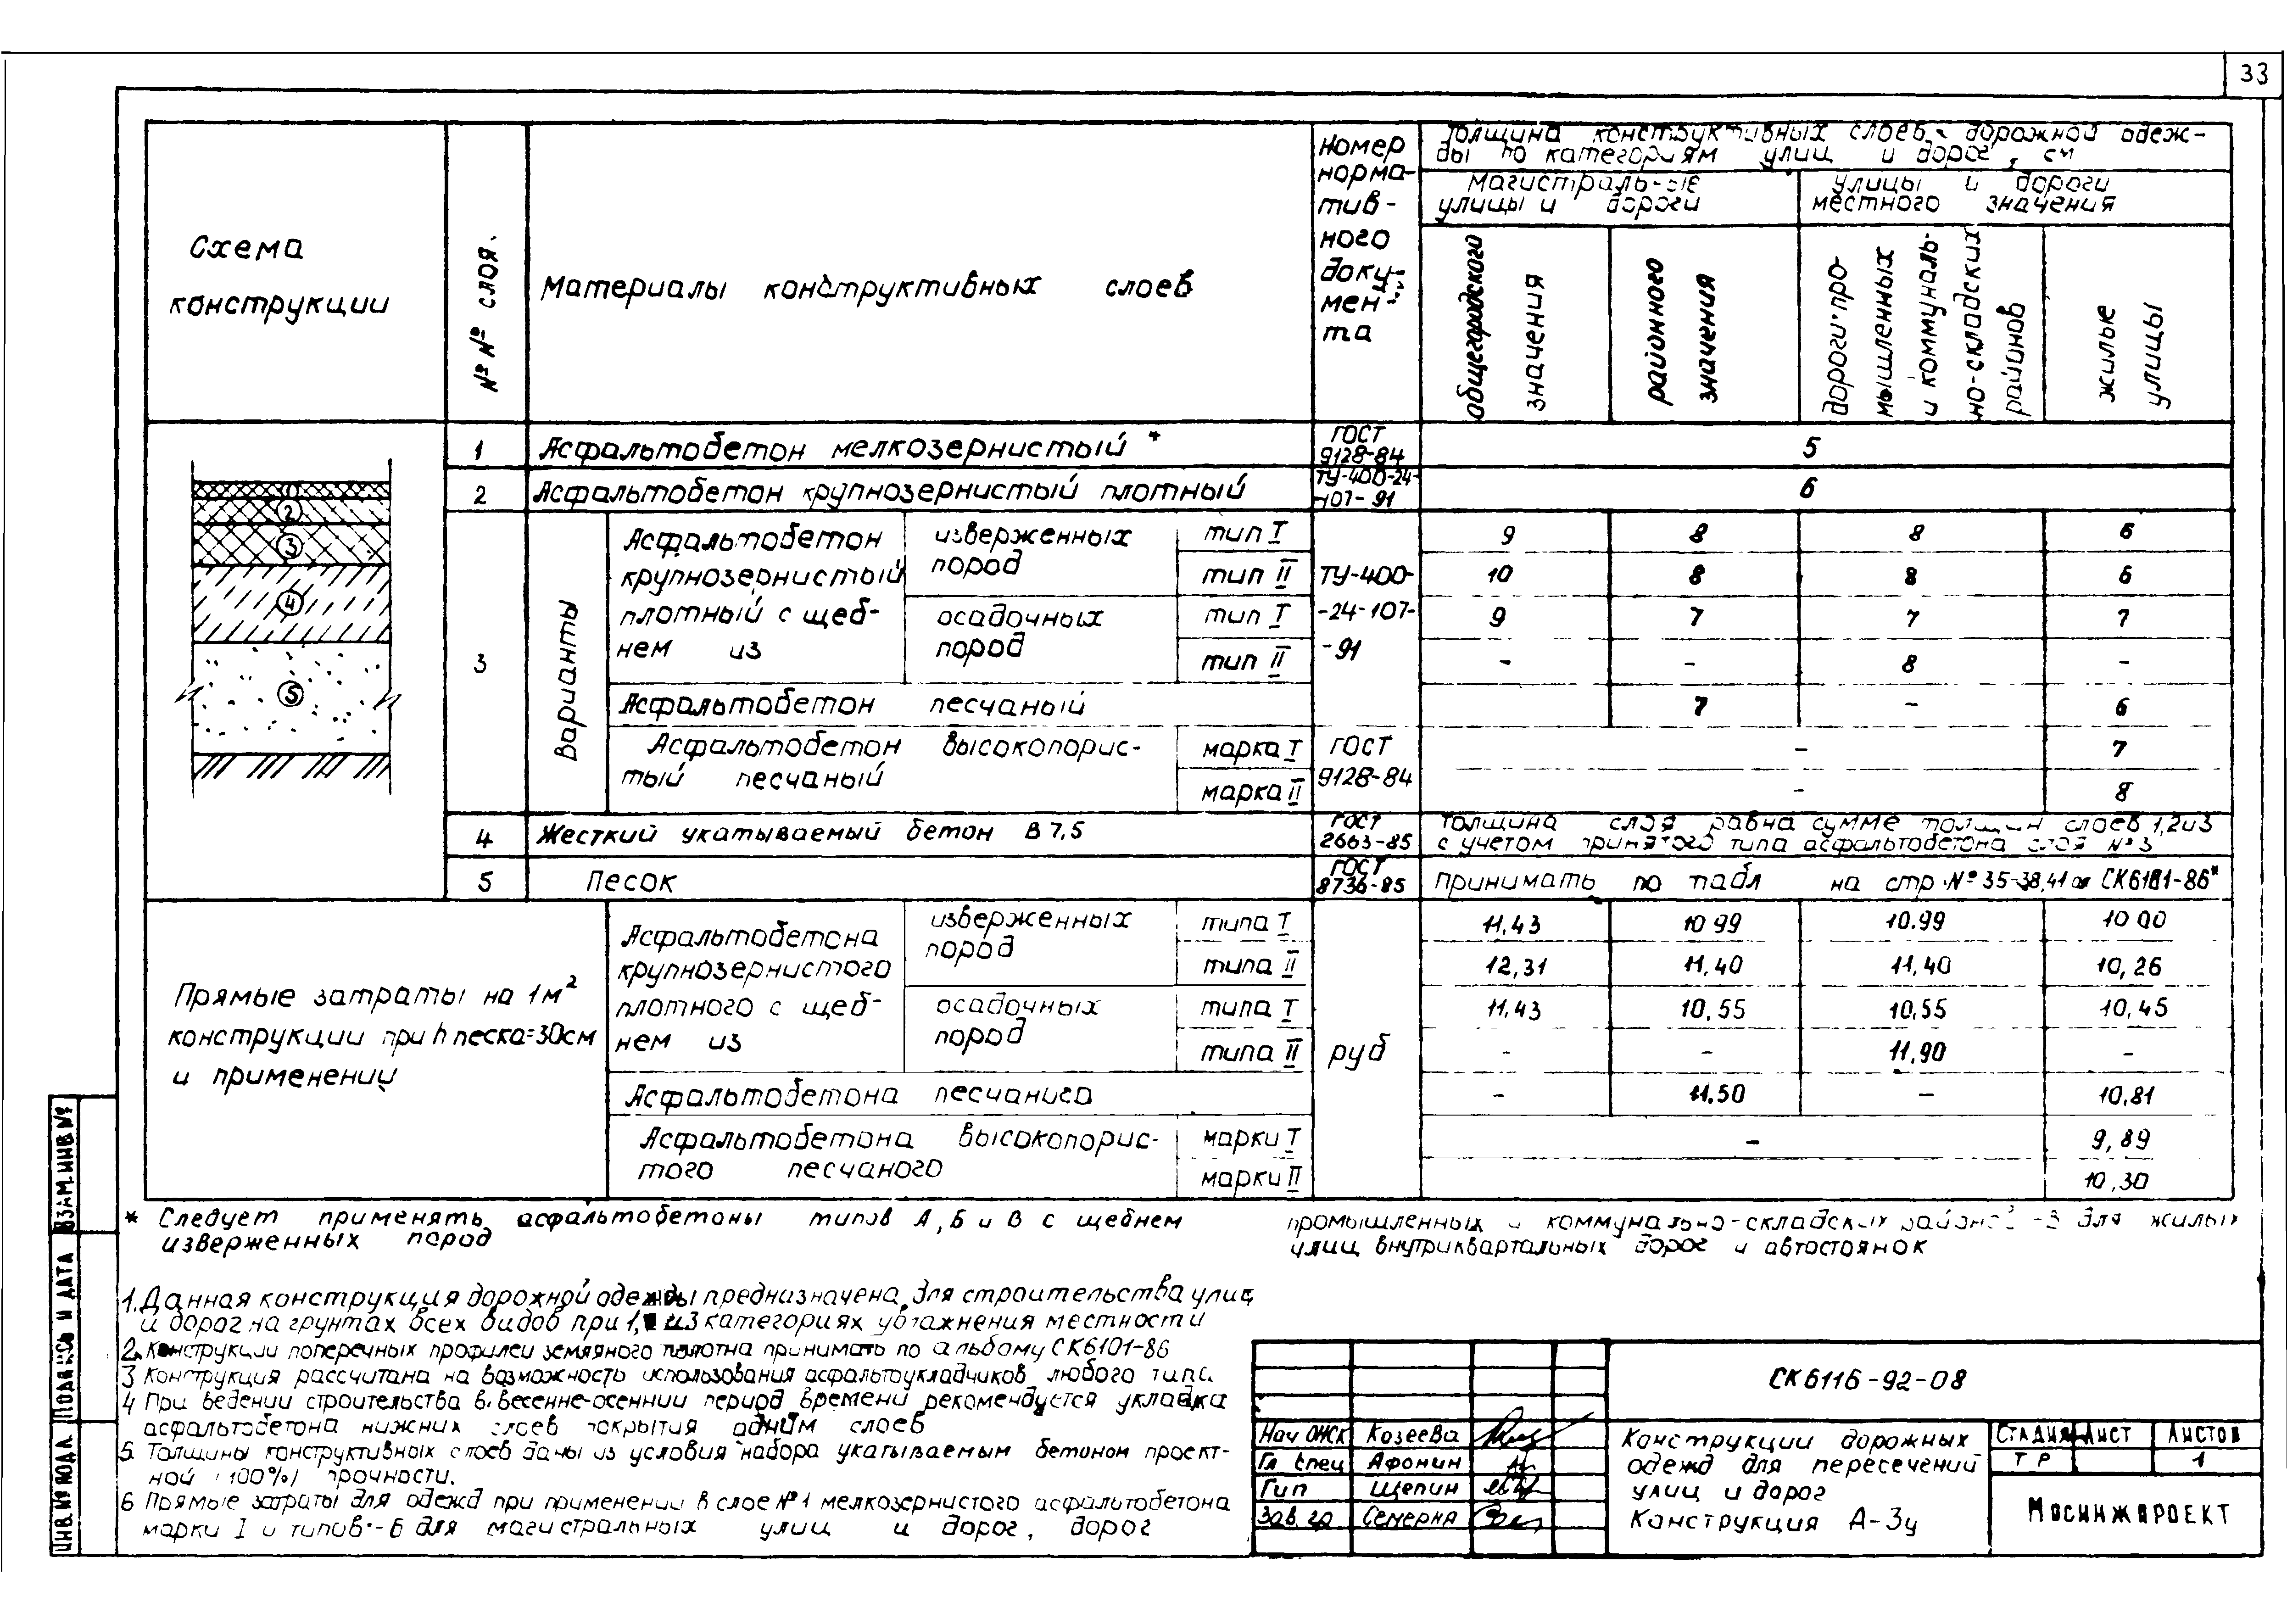 33
Схема
конструкции
№ № слоя.
Материалы конструктивных слоев
Номер
норма-
тив-
ного
доку-
мен-
та
Толщина конструктивных слоев дорожной одеж-
ды по категориям улиц и дорог, см
магистральные
улицы и дороги
улицы и дороги
местного значения
общегородского
значения
районного
значения
дороги про-
мышленных
и коммуналь-
но-складских
районов
жилые
улицы
1 Асфальтобетон мелкозернистый * ГОСТ 9128-84 5
2 Асфальтобетон крупнозернистый плотный ТУ-400-24-107-91 6
3
Варианты
Асфальтобетон
крупнозернистый
плотный с щеб-
нем из
изверженных
пород
осадочных
пород
ТУ-400-
-24-107-
-91
тип I 9 8 8 6
тип II 10 8 8 6
тип I 9 7 7 7
тип II - - 8 -
Асфальтобетон песчаный 7 - 6
Асфальтобетон высокопорис-
тый песчаный
ГОСТ
9128-84
марка I - 7
марка II - 8
4 Жесткий укатываемый бетон В 7,5 ГОСТ 2663-85
Толщина слоя равна сумме толщин слоев 1,2 и 3
с учетом принятого типа асфальтобетона слоя №3
5 Песок ГОСТ 8736-85 принимать по табл на стр. №35-38,41 СК6181-86*
1
2
3
4
5
Прямые затраты на 1м²
конструкции при h песка=30см
и применении
Асфальтобетона
крупнозернистого
плотного с щеб-
нем из
изверженных
пород
осадочных
пород
руб
типа I 11,43 10 99 10.99 10 00
типа II 12,31 11,40 11,40 10,26
типа I 11,43 10,55 10,55 10,45
типа II - - 11,90 -
Асфальтобетона песчаного - 11.50 - 10,81
Асфальтобетона высокопорис-
того песчаного
марки I - 9,89
марки II 10,30
* Следует применять асфальтобетоны типов А,Б и В с щебнем
изверженных пород
1. Данная конструкция дорожной одежды предназначена для строительства улиц
и дорог на грунтах всех видов при 1, и 3 категориях увлажнения местности
2. Конструкции поперечных профилей земляного полотна принимать по альбому СК6101-86
3 Конструкция рассчитана на возможность использования асфальтоукладчиков любого типа.
4 При ведении строительства в весенне-осенний период времени рекомендуется укладка
асфальтобетона нижних слоев покрытия одним слоев
5. Толщины конструктивных слоев даны из условия набора укатываемым бетоном проект-
ной (100%) прочности.
6 Прямые затраты для одежд при применении в слое №1 мелкозернистого асфальтобетона
марки I и типов - Б для магистральных улиц и дорог, дорог
промышленных и коммунально-складских районов -В для жилых
улиц внутриквартальных дорог и автостоянок
СК6116-92-08
Нач ОЖСК Козеева
Гл спец Афонин
Гип Щепин
Зав. гр
Конструкции дорожных
одежд для пересечений
улиц и дорог
Конструкция А-3у
Стадия Лист Листов
ТР 1
Мосинжпроект
Взам. инв №
Подпись и дата
Инв. № подл.